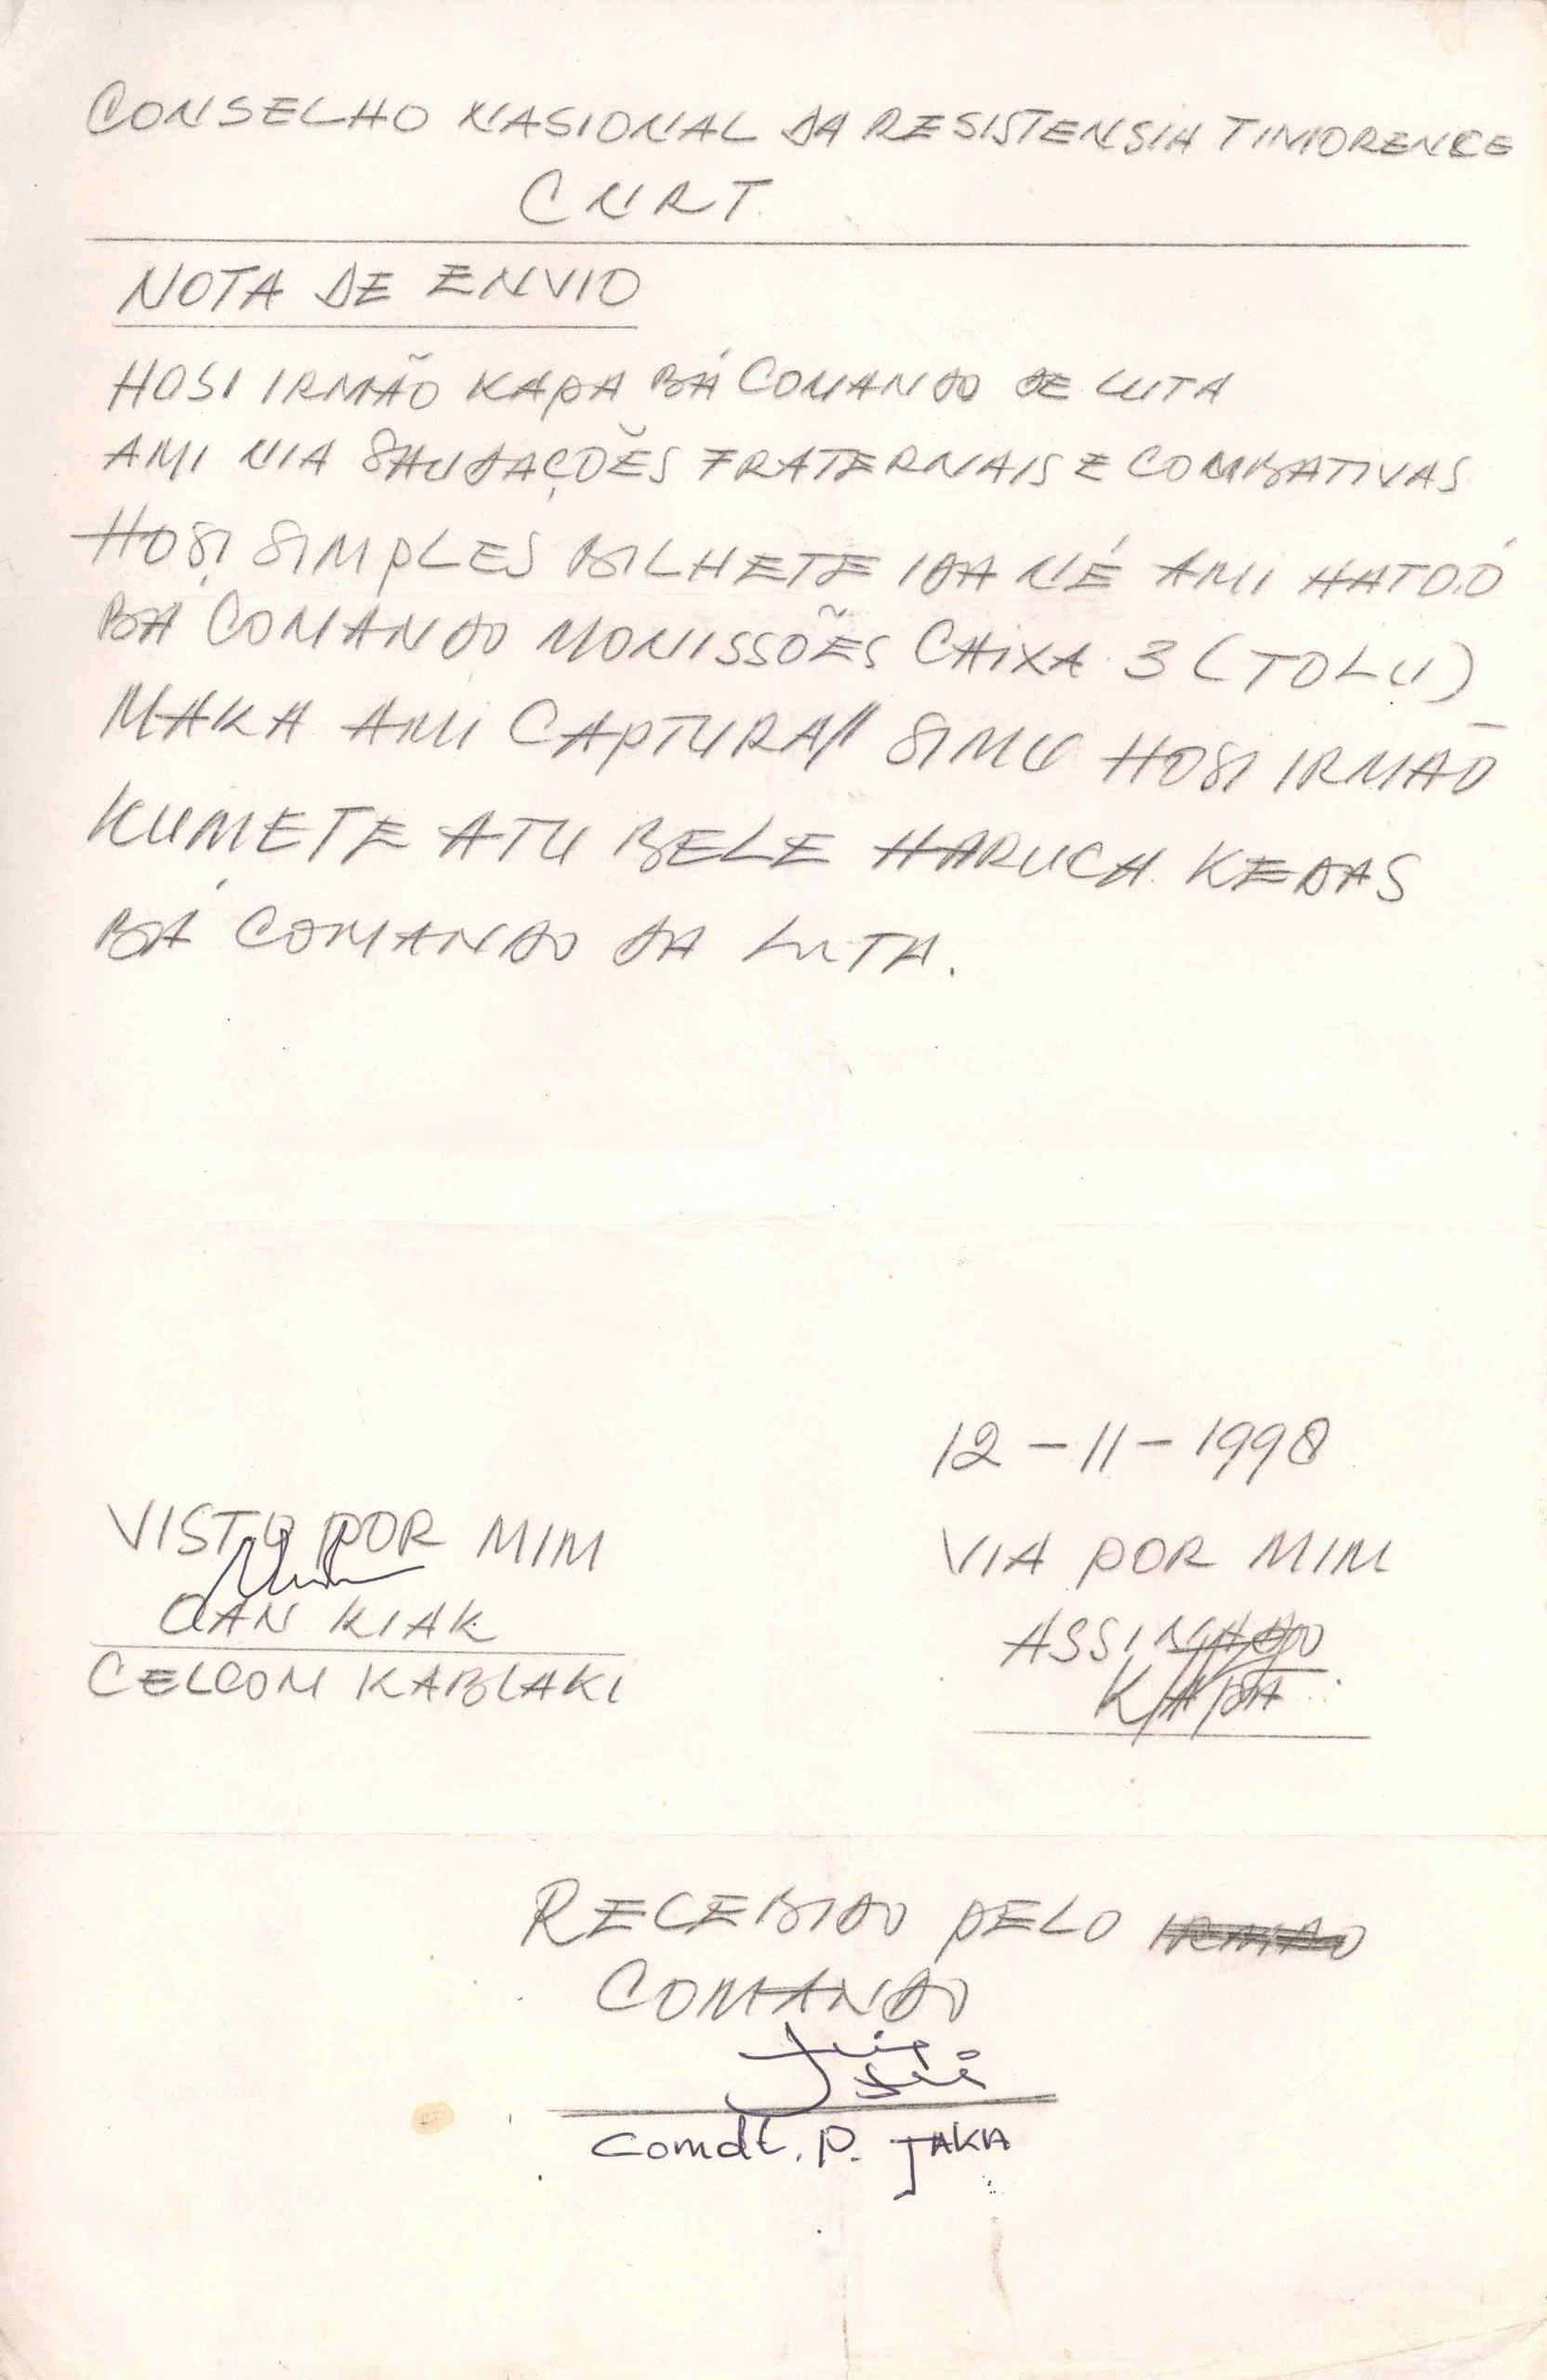 CONSELHO NASIONAL DA RESISTENSIA TIMORENCE
CNRT
NOTA DE ENVIO
HOSI IRMÃO KAPA BÁ COMANDO DE LUTA
AMI NIA SAUDAÇÕES FRATERNAIS E COMBATIVAS
HOSI SIMPLES BILHETE IDA NÉ AMI HATO.Ó
BA COMANDO MONISSÕES CAIXA 3 (TOLU)
MAKA AMI CAPTURA// SIMU HOSI IRMÃO
KUMETE ATU BELE HARUCA KEDAS
BÁ COMANDO DA LUTA.
12-11-1998
VISTO POR MIM
VIA POR MIM
OAN KIAK
ASSINADO
CELCOM KABLAKI
KAPA
RECEBIDO PELO IRMÃO
COMANDO
Comdt. P. JAKA